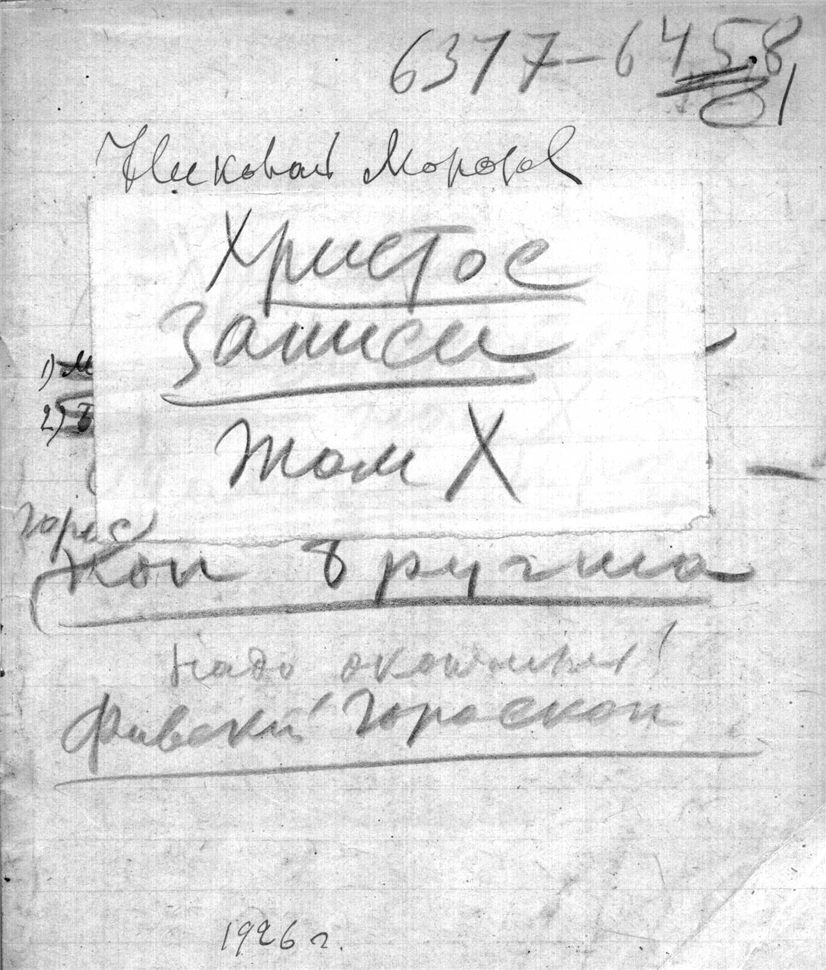 6317-6458
81
Николай Морозов
Христос
Записи
1) М
2)
Том X
Горос
коп Бругша
Надо окончить!
Фивский Гороскоп
1926 г.